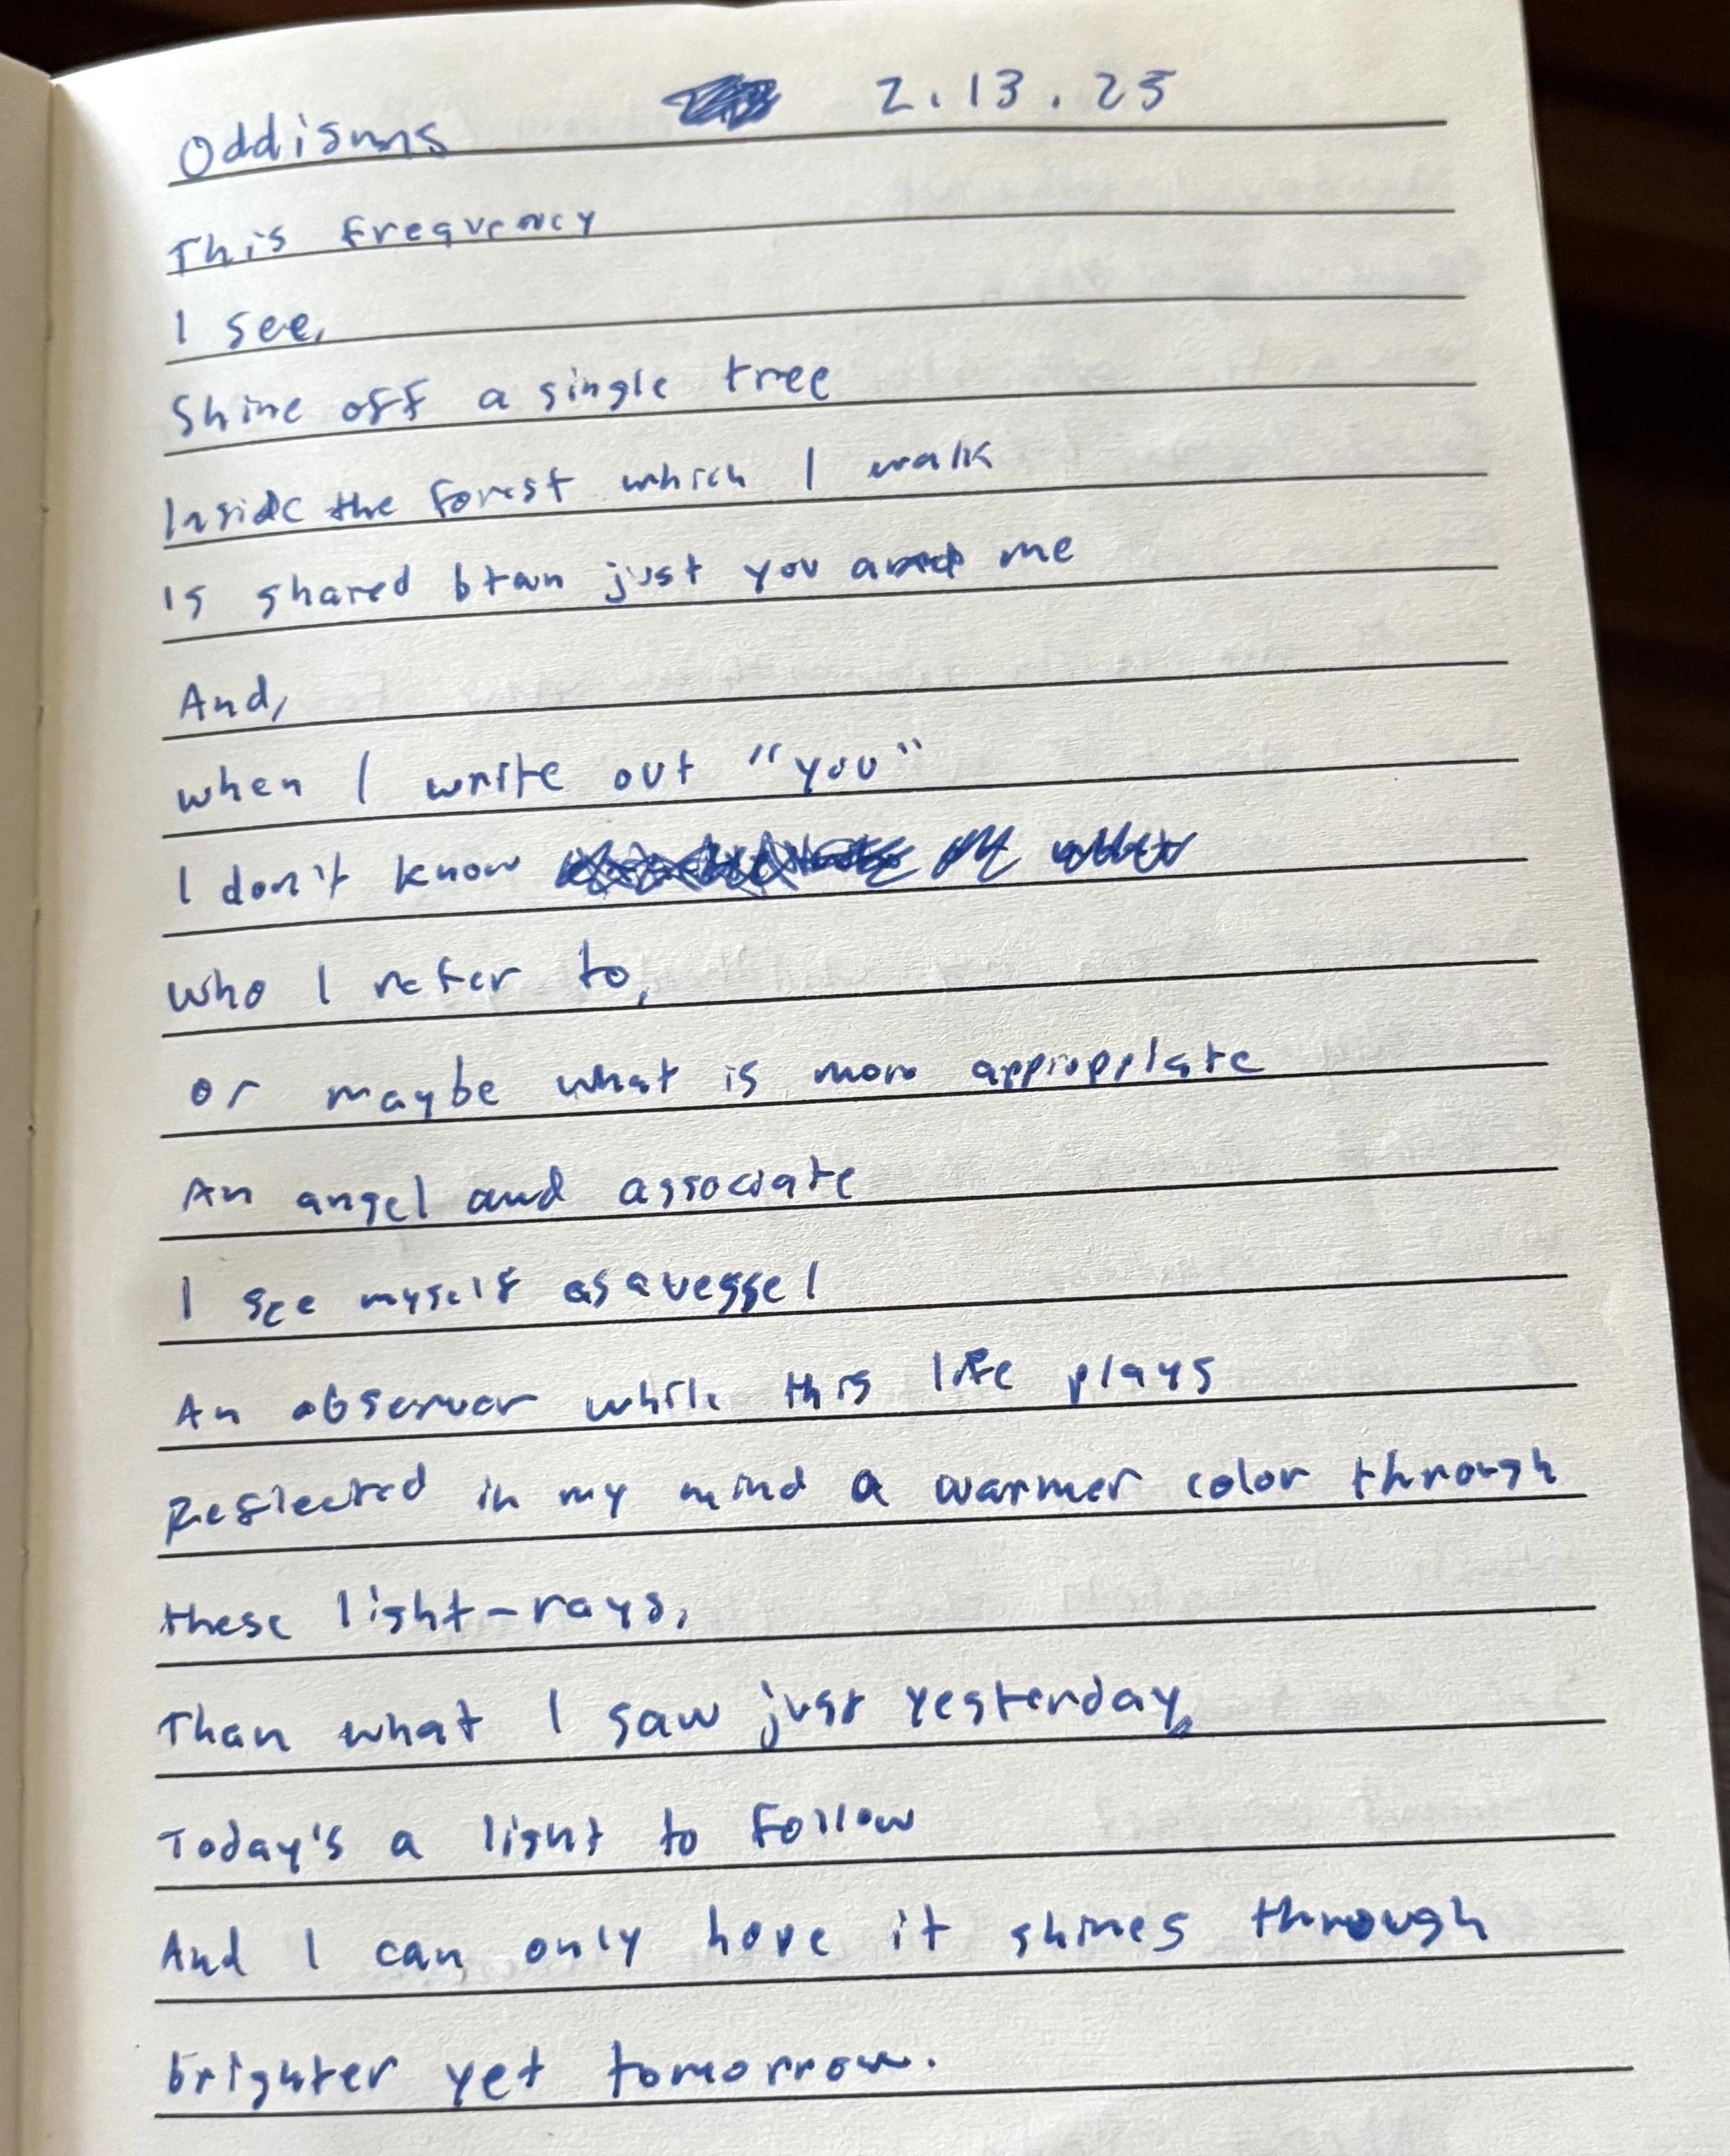 Oddisms 2.13.25
This frequency
I see,
Shine off a single tree
Inside the forest which I walk
Is shared btwn just you and me
And,
when I write out "you"
I don't know
who I refer to,
or maybe what is more appropriate
An angel and associate
I see myself as a vessel
An observer while this life plays
Reflected in my mind a warmer color through
these light-rays,
Than what I saw just yesterday,
Today's a light to follow
And I can only hope it shines through
brighter yet tomorrow.